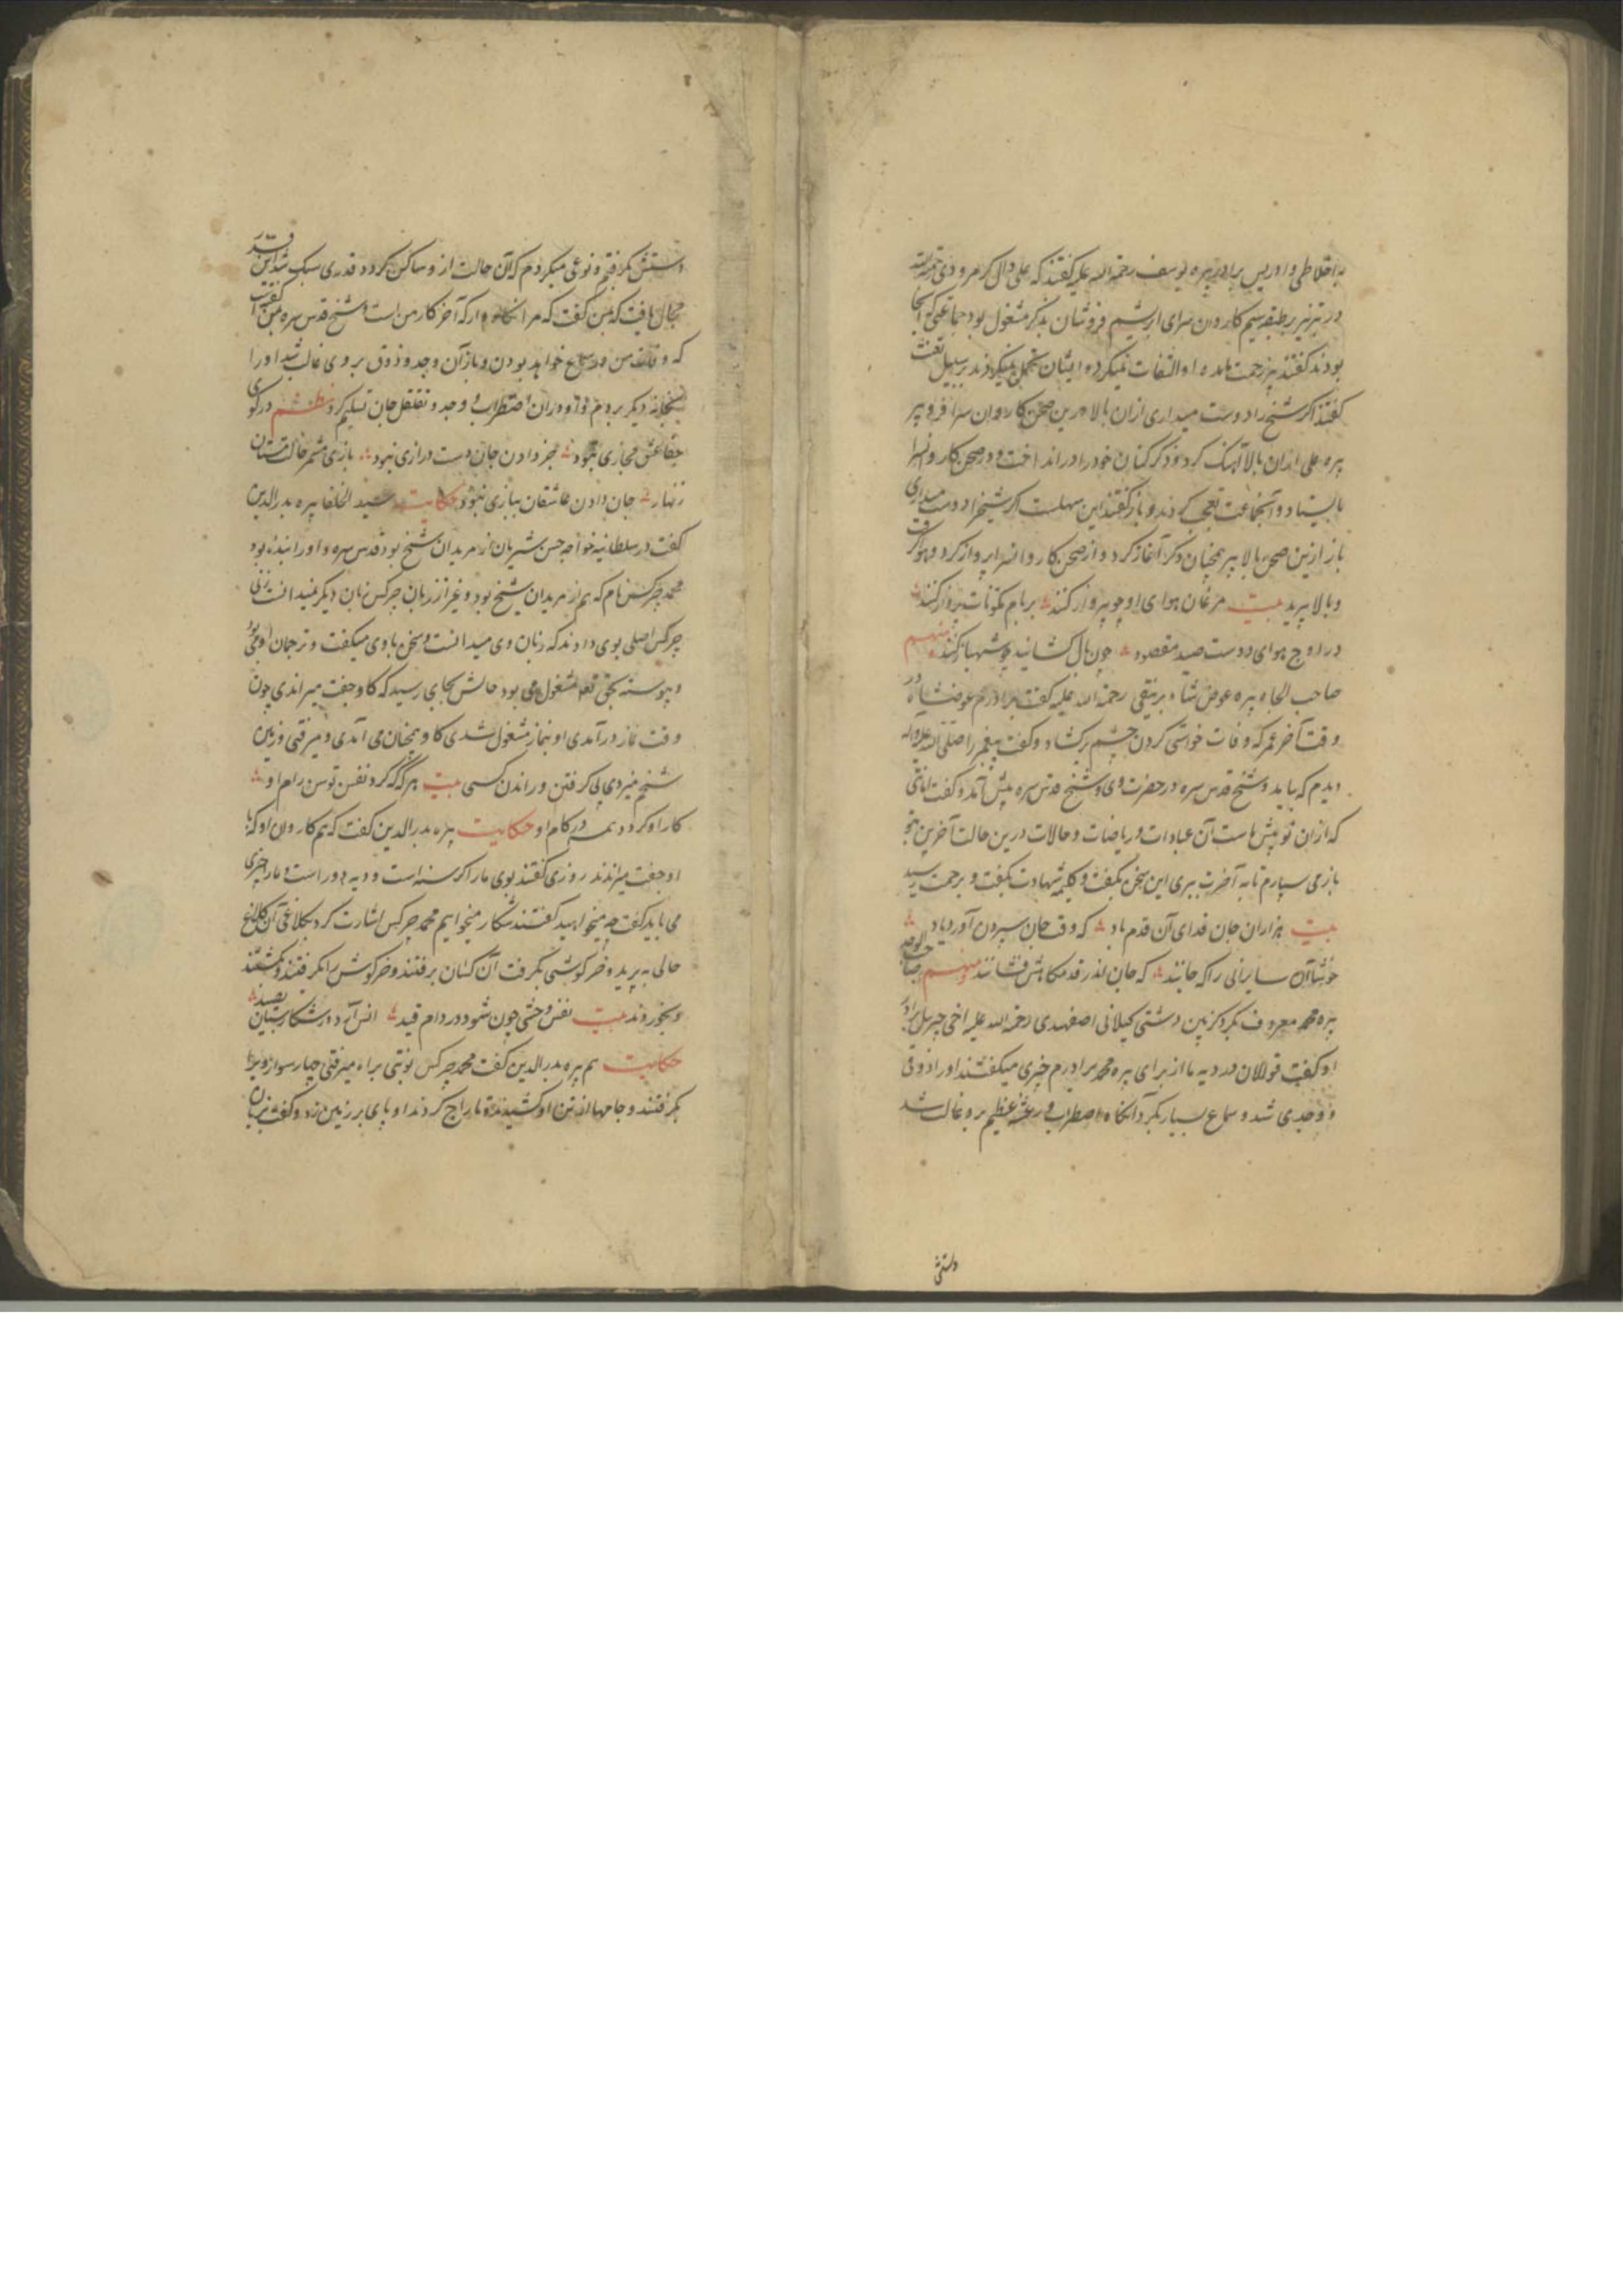 در تبریز بر طبقه سیم کاروان سرای ابریشم فروشان بذکر مشغول بود جماعتی که آنجا
بودند گفتند او التفات نمیکرد و ایشان تحمل نمیکردند بر سبیل تعنت
گفتند اگر شیخ را دوست میداری ازان بالا درین صحن کاروان سرا فرو پر
پیره علی ازان بالا آهنک کرد و ذکر کنان خود را در انداخت و در صحن کاروانسرا
بایستاد و آنجماعت تعجب کردند و باز گفتند این سهلست اگر شیخ را دوست میداری
باز ازین صحن بالا پر همچنان ذکر آغاز کرد و از صحن کاروانسرا پرواز کرد
و بالا پرید بیت مرغان هوای او چو پرواز کنند بر بام مکونات پرواز کنند
در اوج هوای دوست صید مقصود چون بال کشانید چو شهباز کنند منهم
صاحب الجاه پیره عوض شاه رحمة الله علیه گفت برادرم عوضشاه در
وقت آخر عمر که وفات خواستی کردن چشم برکشاد و گفت پیغمبر را صلی الله علیه و آله
دیدم که بیامد و شیخ قدس سره در حضرت وی و شیخ قدس سره پیش آمد و گفت امانتی
که ازان تو پیش ماست آن عبادات و ریاضات و حالات درین حالت آخرین بتو
باز می سپارم تا به آخرت ببری این سخن بگفت و کلمه شهادت بگفت و برحمت رسید
بیت هزاران جان فدای آن قدم باد که وقت جان سپردن آورد یاد
خوشا آن سایرانی را که جانند که جان اندر قدمگاهش فشانند و منهم صاحب الوجد
پیره محمد معروف بکرد کزین دشتی کیلانی اصفهبدی رحمة الله علیه اخی جبرییل برادر
او گفت قوالان در دیه ما از برای پیره محمد برادرم چیزی میگفتند او را ذوقی
و وجدی شد و سماع بسیار بکرد آنگاه اضطراب و رعشه عظیم برو غالب شد
دستش
دستش بگرفتم و نوعی میکردم که آن حالت ازو ساکن کردد قدری سبک شد این قدر
مجال یافت که بمن گفت که مرا نگاه دار که آخر کار من است و شیخ قدس سره بمن گفته است
که وفات من در سماع خواهد بودن و باز آن وجد و ذوق بر وی غالب شد او را
بخانه دیگر بردم و او دران اضطراب و وجد و تقلقل جان تسلیم کرد نظم در کوی
حقا عشق مجازی نبود جز دادن جان دست درازی نبود بازی مشمر حالت مستان
زنهار جان دادن عاشقان ببازی نبود حکایت سید الخلفا پیره بدر الدین
گفت در سلطانیه خواجه حسن شیربان از مریدان شیخ بود قدس سره و او را بنده بود
محمد چرکس نام که هم از مریدان شیخ بود و غیر از زبان چرکس زبان دیگر نمیدانست زنی
چرکس اصلی بوی دادند که زبان وی میدانست و سخن با وی میگفت و ترجمان او می بود
و پیوسته بحق تعالی مشغول می بود حالش بجای رسید که گاو جفت میراندی چون
وقت نماز درآمدی او بنماز مشغول شدی گاو همچنان می آمدی و میرفتی و زمین
شخم میزدی بی گرفتن و راندن کسی بیت هر که کرد نفس توسن رام او
کار او کردد همه در کام او حکایت پیره بدر الدین گفت که هم کاروان او که با
او جفت میراندند روزی گفتند بوی ما را گرسنه است و دیه دور است و ما را چیزی
می باید گفت چه میخواهید گفتند شکار میخواهیم محمد چرکس اشارت کرد بکلاغی آن کلاغ
حالی بپرید و خرگوشی بگرفت آن کسان برفتند و خرگوش را بگرفتند و بکشتند
و بخوردند بیت نفس وحشی چون شود در دام قید انس آرد در شکارستان بصید
حکایت هم پیره بدر الدین گفت محمد چرکس نوبتی براه میرفتی چهار سوار او را
بگرفتند و جامها از تن او کشیدند و تاراج کردند او پای بر زمین زد و گفت بزبان